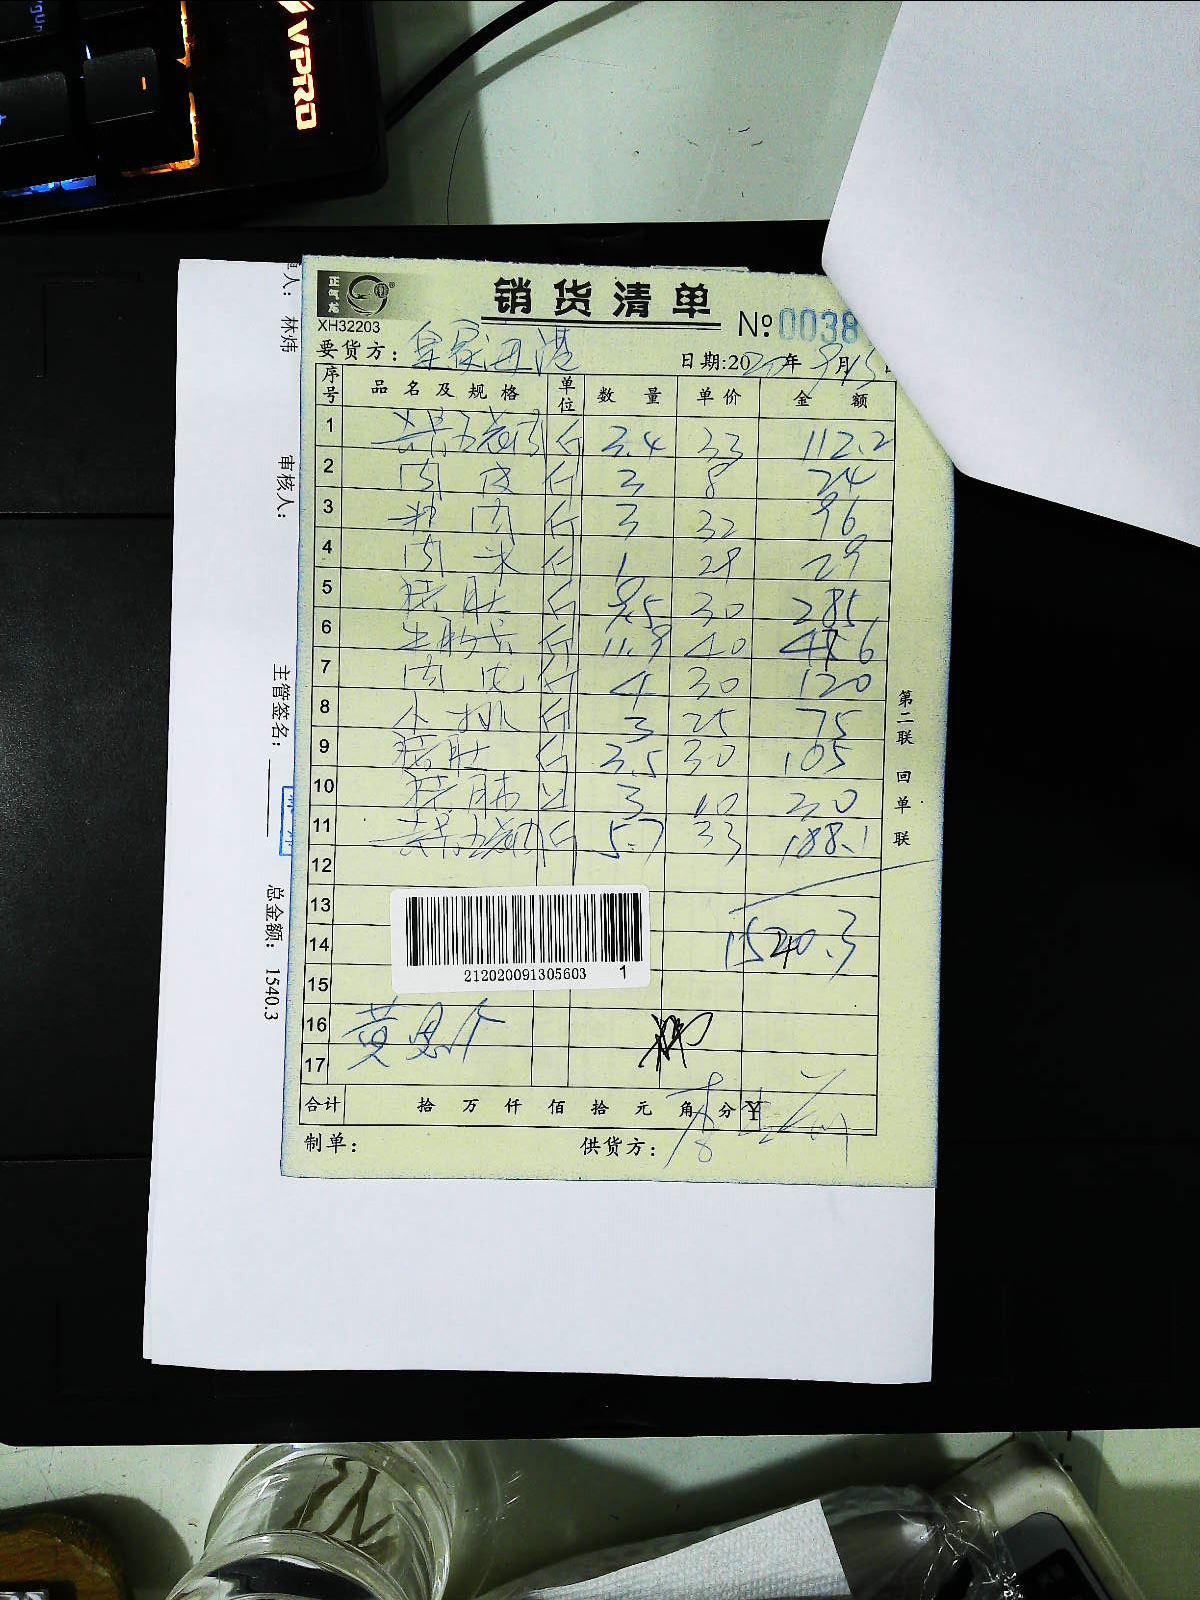 VPRO
正气龙
XH32203
销货清单
№:0038
要货方: 皇家西港
日期:2020年9月13日
序号 品名及规格 单位 数量 单价 金额
1 斤 3.4 33 112.2
2 肉皮 斤 3 8 24
3 肉 斤 3 32 96
4 肉末 斤 1 29 29
5 猪肚 斤 9.5 30 285
6 斤 11.9 40 476
7 肉 斤 4 30 120
8 小排 斤 3 25 75
9 猪肚 斤 3.5 30 105
10 猪肺 只 3 10 30
11 斤 5.7 33 188.1
12
13
14 1540.3
15
16
17
212020091305603 1
合计 拾 万 仟 佰 拾 元 角 分 ¥
制单:
供货方:
第二联 回单联
单人: 林炜
审核人:
主管签名:
总金额: 1540.3